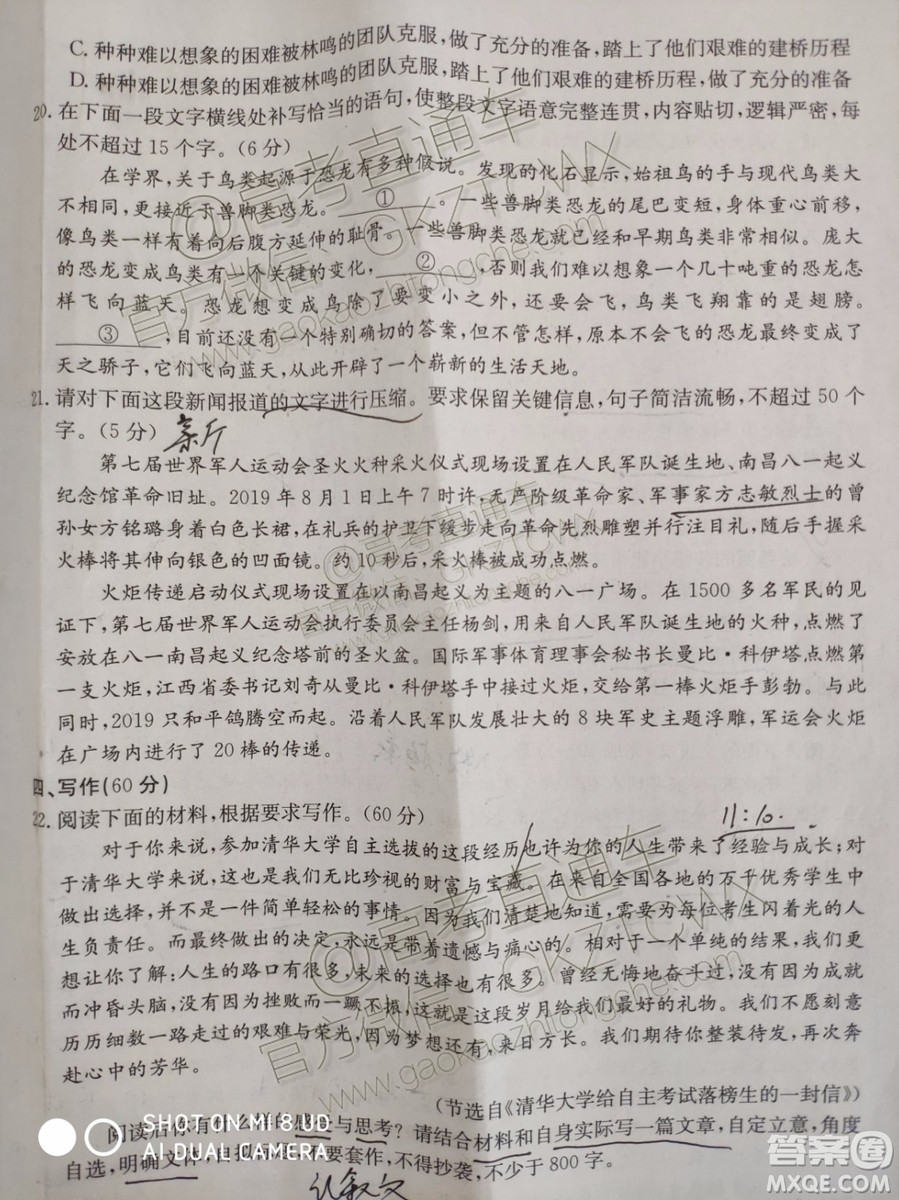 C. 种种难以想象的困难被林鸣的团队克服,做了充分的准备,踏上了他们艰难的建桥历程
D. 种种难以想象的困难被林鸣的团队克服,踏上了他们艰难的建桥历程,做了充分的准备
20. 在下面一段文字横线处补写恰当的语句,使整段文字语意完整连贯,内容贴切,逻辑严密,每
处不超过 15 个字。(6 分)
在学界,关于鸟类起源于恐龙有多种假说。发现的化石显示,始祖鸟的手与现代鸟类大
不相同,更接近于兽脚类恐龙。 ① 。一些兽脚类恐龙的尾巴变短,身体重心前移,
像鸟类一样有着向后腹方延伸的耻骨。一些兽脚类恐龙就已经和早期鸟类非常相似。庞大
的恐龙变成鸟类有一个关键的变化, ② ,否则我们难以想象一个几十吨重的恐龙怎
样飞向蓝天。恐龙想变成鸟除了要变小之外,还要会飞,鸟类飞翔靠的是翅膀。
③ ,目前还没有一个特别确切的答案,但不管怎样,原本不会飞的恐龙最终变成了
天之骄子,它们飞向蓝天,从此开辟了一个崭新的生活天地。
21. 请对下面这段新闻报道的文字进行压缩。要求保留关键信息,句子简洁流畅,不超过 50 个
字。(5 分)
第七届世界军人运动会圣火火种采火仪式现场设置在人民军队诞生地、南昌八一起义
纪念馆革命旧址。2019 年 8 月 1 日上午 7 时许,无产阶级革命家、军事家方志敏烈士的曾
孙女方铭璐身着白色长裙,在礼兵的护卫下缓步走向革命先烈雕塑并行注目礼,随后手握采
火棒将其伸向银色的凹面镜。约 10 秒后,采火棒被成功点燃。
火炬传递启动仪式现场设置在以南昌起义为主题的八一广场。在 1500 多名军民的见
证下,第七届世界军人运动会执行委员会主任杨剑,用来自人民军队诞生地的火种,点燃了
安放在八一南昌起义纪念塔前的圣火盆。国际军事体育理事会秘书长曼比·科伊塔点燃第
一支火炬,江西省委书记刘奇从曼比·科伊塔手中接过火炬,交给第一棒火炬手彭勃。与此
同时,2019 只和平鸽腾空而起。沿着人民军队发展壮大的 8 块军史主题浮雕,军运会火炬
在广场内进行了 20 棒的传递。
四、写作(60 分)
22. 阅读下面的材料,根据要求写作。(60 分)
11:10
对于你来说,参加清华大学自主选拔的这段经历也许为你的人生带来了经验与成长;对
于清华大学来说,这也是我们无比珍视的财富与宝藏。在来自全国各地的万千优秀学生中
做出选择,并不是一件简单轻松的事情。因为我们清楚地知道,需要为每位考生闪着光的人
生负责任。而最终做出的决定,永远是带着遗憾与痛心的。相对于一个单纯的结果,我们更
想让你了解:人生的路口有很多,未来的选择也有很多。曾经无悔地奋斗过,没有因为成就
而冲昏头脑,没有因为挫败而一蹶不振,这就是这段岁月给我们最好的礼物。我们不愿刻意
历历细数一路走过的艰难与荣光,因为梦想还有,来日方长。我们期待你整装待发,再次奔
赴心中的芳华。
(节选自《清华大学给自主考试落榜生的一封信》)
阅读后你有什么样的感悟与思考?请结合材料和自身实际写一篇文章,自定立意,角度
自选,明确文体,自拟标题,不要套作,不得抄袭,不少于 800 字。
@高考直通车
官方微信:GKZTCWX
www.gaokaozhitongche.com
SHOT ON MI 8 UD
AI DUAL CAMERA
答案圈
MXQE.COM